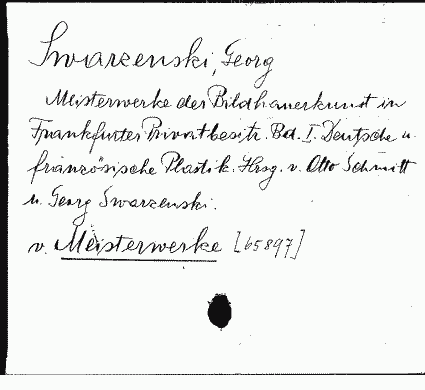 Swarzenski, Georg
Meisterwerke der Bildhauerkunst in
Frankfurter Privatbesitz. Bd. I. Deutsche u.
französische Plastik. Hrsg. v. Otto Schmitt
u. Georg Swarzenski.
v. Meisterwerke [65897]